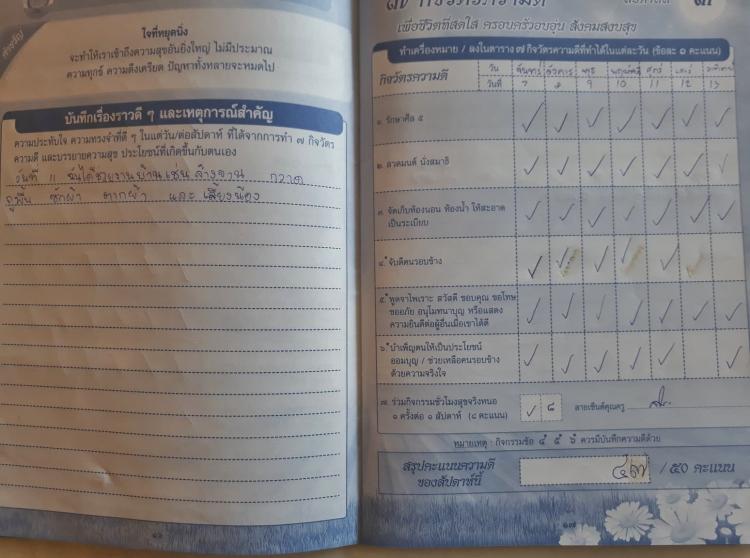 ใจที่หยุดนิ่ง
จะทำให้เราเข้าถึงความสุขอันยิ่งใหญ่ ไม่มีประมาณ
ความทุกข์ ความตึงเครียด ปัญหาทั้งหลายจะหมดไป
บันทึกเรื่องราวดี ๆ และเหตุการณ์สำคัญ
ความประทับใจ ความทรงจำที่ดี ๆ ในแต่ละวัน/ต่อสัปดาห์ ที่ได้จากการทำ ๗ กิจวัตร
ความดี และบรรยายความสุข ประโยชน์ที่เกิดขึ้นกับตนเอง
วันที่ 11 ฉันได้ช่วยงานบ้านเช่น ล้างจาน กวาด
ถูพื้น ซักผ้า ตากผ้า และ เลี้ยงน้อง
๑๖
เพื่อชีวิตที่สดใส ครอบครัวอบอุ่น สังคมสงบสุข
ทำเครื่องหมาย / ลงในตาราง ๗ กิจวัตรความดีที่ทำได้ในแต่ละวัน (ข้อละ ๑ คะแนน)
กิจวัตรความดี วัน จันทร์ อังคาร พุธ พฤหัสดี ศุกร์ เสาร์ อาทิตย์
วันที่ 7 8 9 10 11 12 13
๑. รักษาศีล ๕
๒. สวดมนต์ นั่งสมาธิ
๓. จัดเก็บห้องนอน ห้องน้ำ ให้สะอาด
เป็นระเบียบ
๔. จับดีคนรอบข้าง
๕. พูดจาไพเราะ สวัสดี ขอบคุณ ขอโทษ
ขออภัย อนุโมทนาบุญ หรือแสดง
ความยินดีต่อผู้อื่นเมื่อเขาได้ดี
๖. บำเพ็ญตนให้เป็นประโยชน์
ออมบุญ / ช่วยเหลือคนรอบข้าง
ด้วยความจริงใจ
๗. ร่วมกิจกรรมชั่วโมงสุขจริงหนอ
๑ ครั้งต่อ ๑ สัปดาห์ (๘ คะแนน) ๘ ลายเซ็นต์คุณครู
หมายเหตุ : กิจกรรมข้อ ๔ ๕ ๖ ควรมีบันทึกความดีด้วย
สรุปคะแนนความดี
ของสัปดาห์นี้ ๔๗ / ๕๐ คะแนน
๑๗